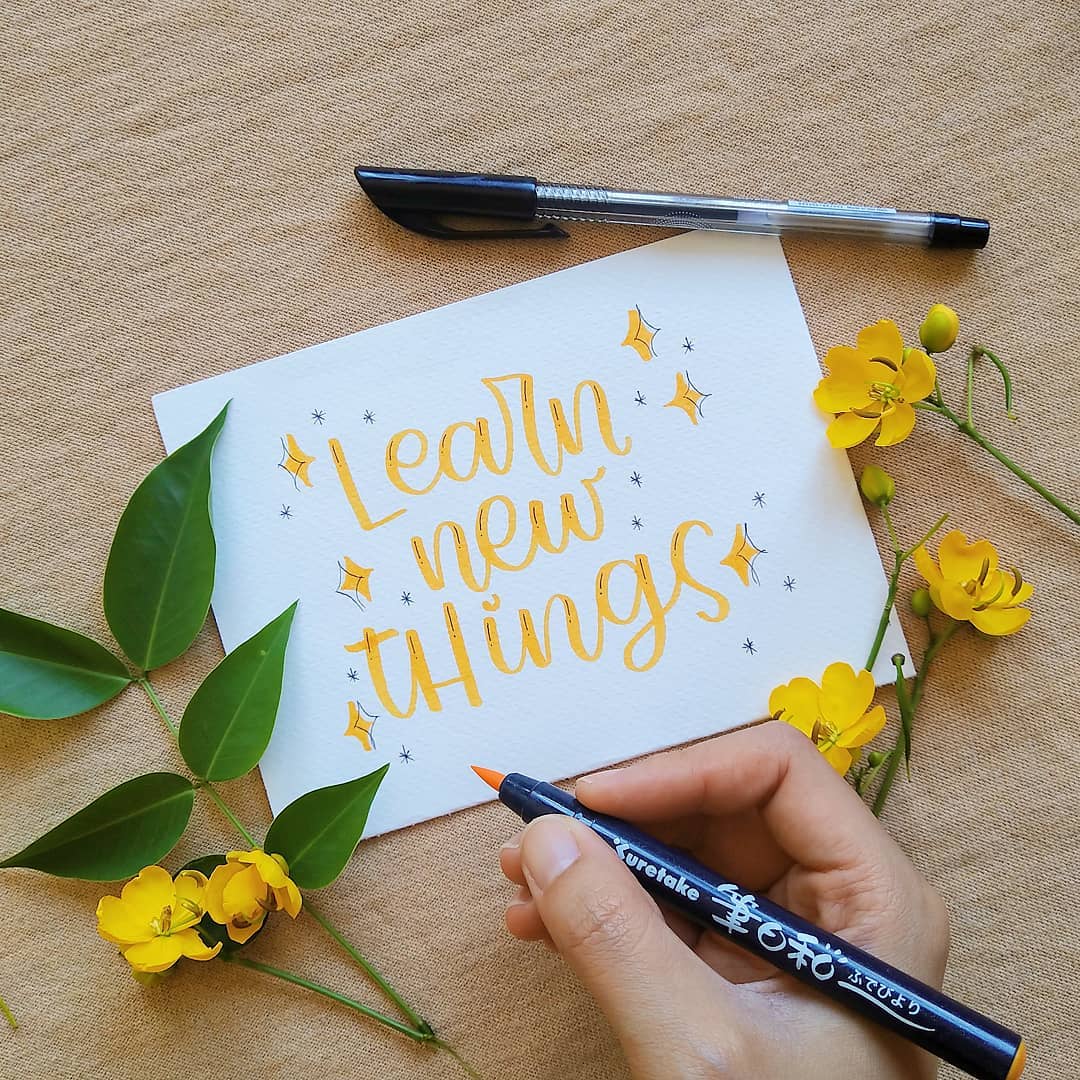 Learn
new
tHings
Kuretake 筆日和 ふでびより